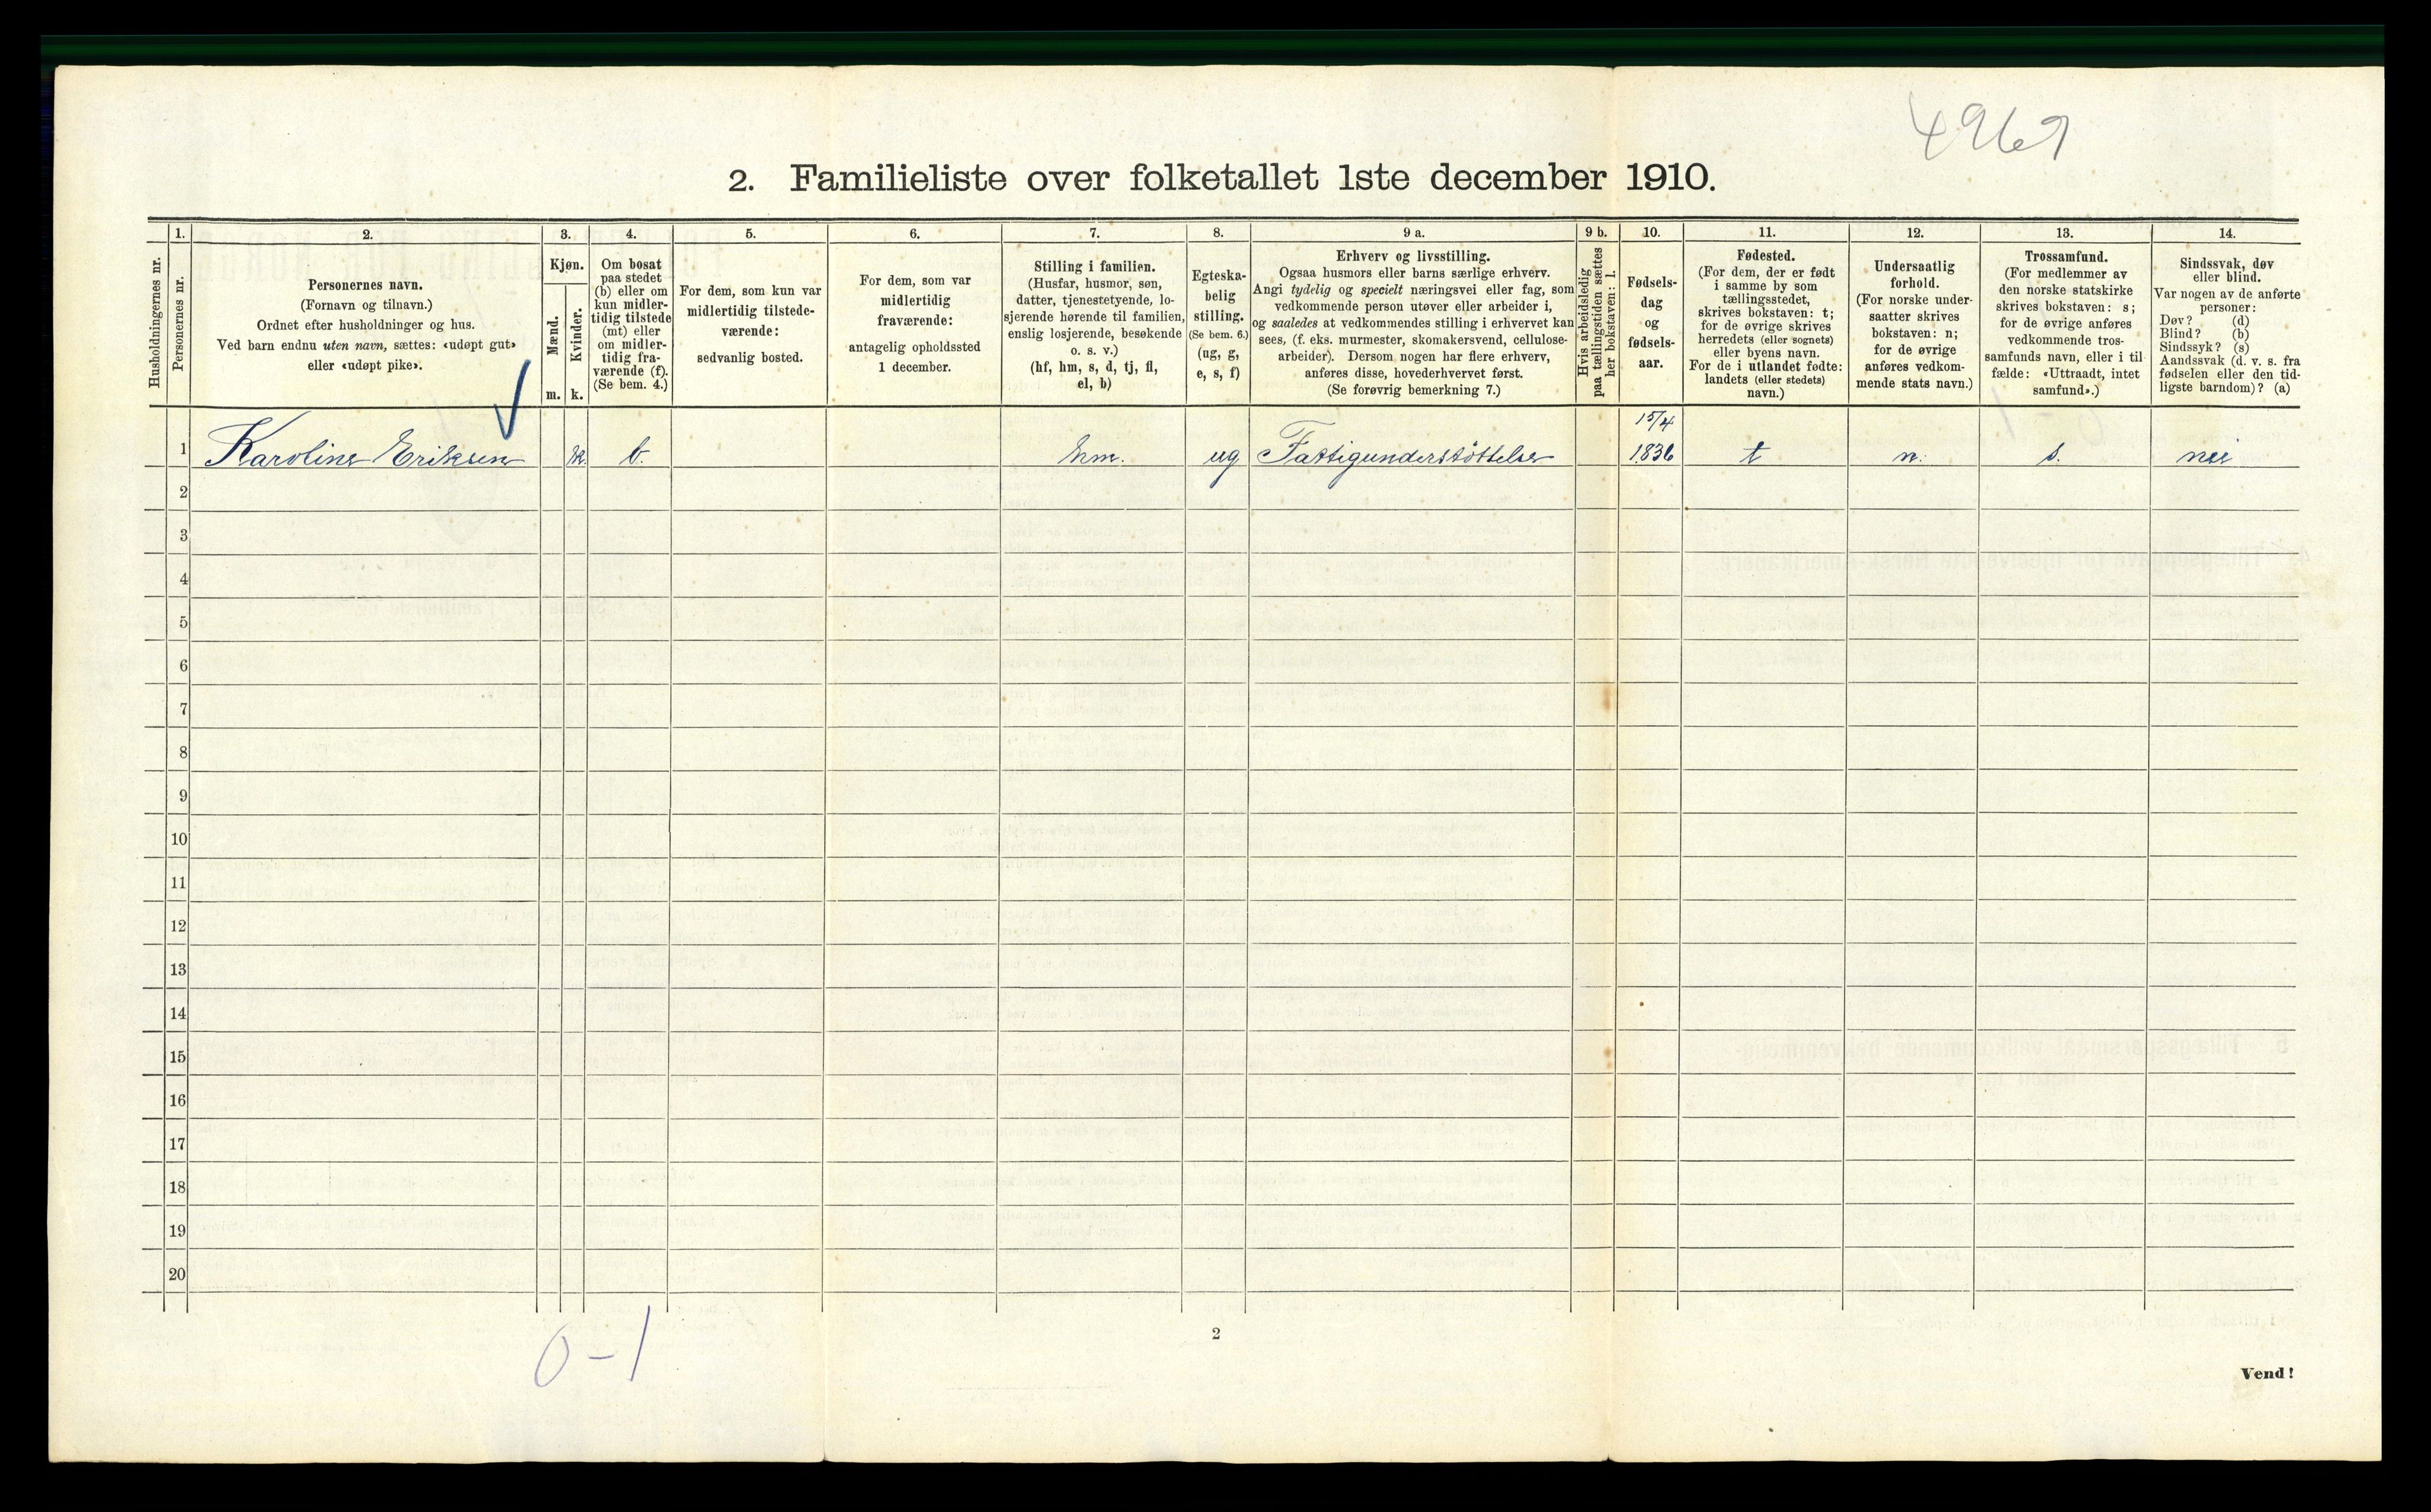 4969
2. Familieliste over folketallet 1ste december 1910.
Husholdningernes nr.
1.
Personernes nr.
2.
Personernes navn.
(Fornavn og tilnavn.)
Ordnet efter husholdninger og hus.
Ved barn endnu uten navn, sættes: «udøpt gut»
eller «udøpt pike».
3.
Kjøn.
Mænd.
Kvinder.
m. k.
4.
Om bosat
paa stedet
(b) eller om
kun midler-
tidig tilstede
(mt) eller
om midler-
tidig fra-
værende (f).
(Se bem. 4.)
5.
For dem, som kun var
midlertidig tilstede-
værende:
sedvanlig bosted.
6.
For dem, som var
midlertidig
fraværende:
antagelig opholdssted
1 december.
7.
Stilling i familien.
(Husfar, husmor, søn,
datter, tjenestetyende, lo-
sjerende hørende til familien,
enslig losjerende, besøkende
o. s. v.)
(hf, hm, s, d, tj, fl,
el, b)
8.
Egteska-
belig
stilling.
(Se bem. 6.)
(ug, g,
e, s, f)
9 a.
Erhverv og livsstilling.
Ogsaa husmors eller barns særlige erhverv.
Angi tydelig og specielt næringsvei eller fag, som
vedkommende person utøver eller arbeider i,
og saaledes at vedkommendes stilling i erhvervet kan
sees, (f. eks. murmester, skomakersvend, cellulose-
arbeider). Dersom nogen har flere erhverv,
anføres disse, hovederhvervet først.
(Se forøvrig bemerkning 7.)
9 b.
Hvis arbeidsledig
paa tællingstiden sættes
her bokstaven: l.
10.
Fødsels-
dag
og
fødsels-
aar.
11.
Fødested.
(For dem, der er født
i samme by som
tællingsstedet,
skrives bokstaven: t;
for de øvrige skrives
herredets (eller sognets)
eller byens navn.
For de i utlandet fødte:
landets (eller stedets)
navn.)
12.
Undersaatlig
forhold.
(For norske under-
saatter skrives
bokstaven: n;
for de øvrige
anføres vedkom-
mende stats navn.)
13.
Trossamfund.
(For medlemmer av
den norske statskirke
skrives bokstaven: s;
for de øvrige anføres
vedkommende tros-
samfunds navn, eller i til-
fælde: «Uttraadt, intet
samfund».)
14.
Sindssvak, døv
eller blind.
Var nogen av de anførte
personer:
Døv? (d)
Blind? (b)
Sindssyk? (s)
Aandssvak (d. v. s. fra
fødselen eller den tid-
ligste barndom)? (a)
15/4
1 Karoline Eriksen k. b. hm. ug Fattigunderstöttelse 1836 t n. s. nei
2
3
4
5
6
7
8
9
10
11
12
13
14
15
16
17
18
19
20
0-1
2
Vend!